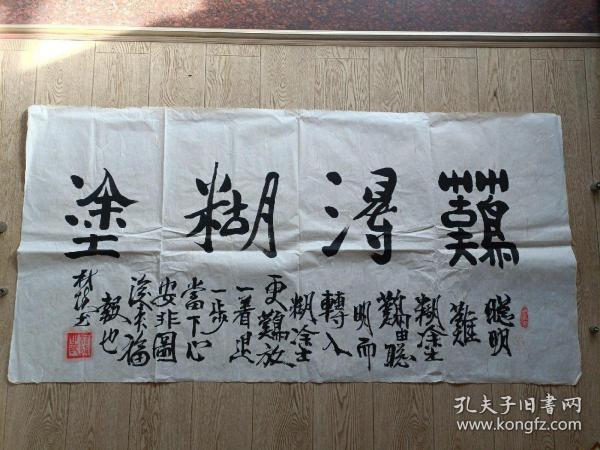 難淂糊塗
聰明
難
糊塗
難由聰
明而
轉入
糊塗
更難放
一着退
一步
當下心
安非圖
後来福
報也
孔夫子旧书网
www.kongfz.com